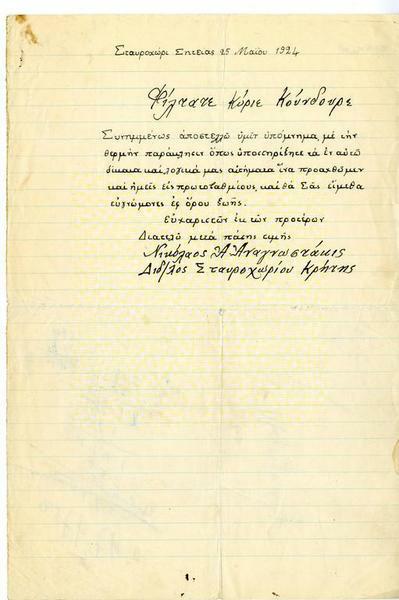 Σταυροχώρι Σητείας 25 Μαΐου 1924
Φίλτατε Κύριε Κούνδουρε
Συνημμένως ἀποστέλλω ὑμῖν ὑπόμνημα, μέ τήν
θερμήν παράκλησιν ὅπως ὑποστηρίξητε τά ἐν αὐτῷ
δίκαια καί λογικά μας αἰτήματα ἵνα προαχθῶμεν
καί ἡμεῖς εἰς πρωτοβαθμίους, καί θά Σᾶς εἴμεθα
εὐγνώμονες ἐφ' ὅρου ζωῆς.
Εὐχαριστῶν ἐκ τῶν προτέρων
Διατελῶ μετά πάσης τιμῆς
Νικόλαος Ἀναγνωστάκις
Διδ/λος Σταυροχωρίου Κρήτης